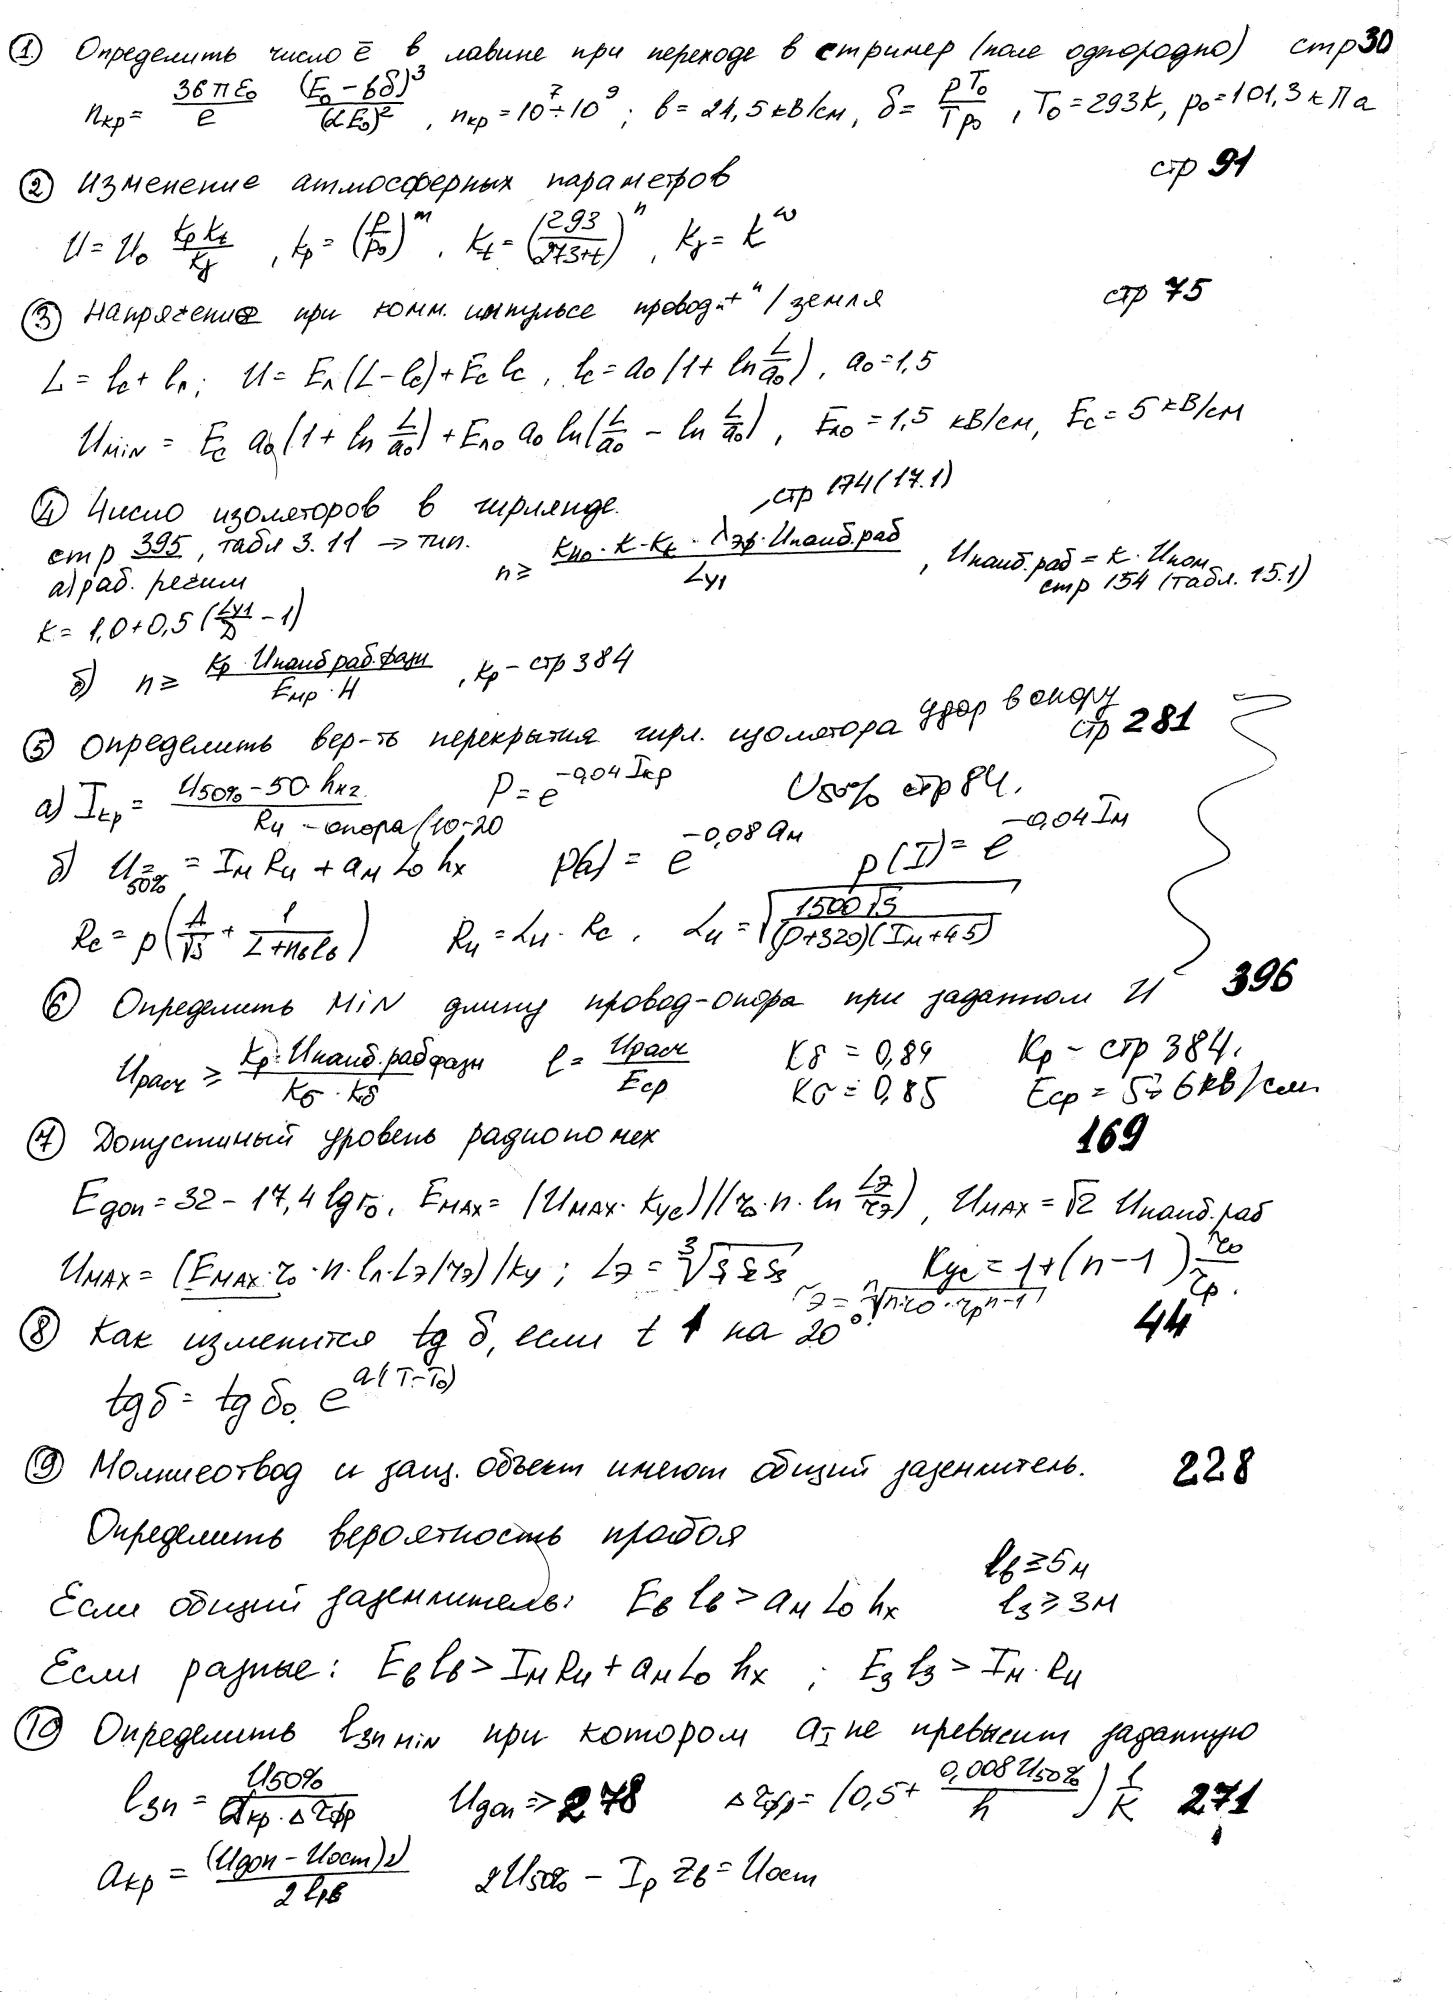 ① Определить число ē в лавине при переходе в стример (поле однородно) стр 30
nкр = 36πε₀/e (E₀ − bδ)³/(αE₀)², nкр = 10⁷ ÷ 10⁹; b = 24,5 кВ/см, δ = pT₀/Tp₀, T₀ = 293К, p₀ = 101,3 кПа
② Изменение атмосферных параметров стр 91
U = U₀ kp kt/kγ, kp = (p/p₀)^m, kt = (293/273+t)^n, kγ = k^ω
③ Напряжение при комм. импульсе провод "+" / земля стр 75
L = lc + lл; U = Eл(L − lc) + Ec lc, lc = a₀(1 + ln L/a₀), a₀ = 1,5
Umin = Ec a₀(1 + ln L/a₀) + Eло a₀ ln(L/a₀ − ln L/a₀), Eло = 1,5 кВ/см, Ec = 5 кВ/см
④ Число изоляторов в гирлянде. стр 174 (17.1)
стр 395, табл 3.11 → тип.
а) раб. режим n ≥ kно · k · kк · λэф · Uнаиб.раб/Lу1, Uнаиб.раб = k · Uном
стр 154 (табл. 15.1)
k = 1,0 + 0,5(Lу1/D − 1)
б) n ≥ kр · Uнаиб раб.фазн/Eмр · H, kр – стр 384
⑤ Определить вер-ть перекрытия гирл. изолятора удар в опору стр 281
а) Iкр = U50% − 50 · hк2/Rи – опора (10–20 P = e^−0,04 Iкр U50% стр 84.
б) U=50% = Iм Rи + aм L₀ hх P(a) = e^−0,08 aм P(I) = e^−0,04 Iм
Rc = ρ(A/√S + 1/L + nв lв) Rи = Lи · Rc, Lи = √1500√S/(ρ+320)(Iм+45)
⑥ Определить MiN длину провод-опора при заданном U 396
Uрасч ≥ Kр · Uнаиб.раб фазн/Kσ · Kδ l = Uрасч/Eср Kδ = 0,89 Kр – стр 384.
Kσ = 0,85 Eср = 5÷6 кВ/см.
⑦ Допустимый уровень радиопомех 169
Eдоп = 32 − 17,4 lg r₀, EMAX = (UMAX · Kус)/(r₀ · n · ln Lэ/rэ), UMAX = √2 Uнаиб.раб
UMAX = (EMAX · r₀ · n · ln · Lэ/rэ)/kу; Lэ = ³√S S S Kус = 1+(n−1) r₀/rр.
rэ = ⁿ√n · r₀ · rр^n−1
⑧ Как изменится tg δ, если t ↑ на 20°. 44
tg δ = tg δ₀ e^a(T−T₀)
⑨ Молниеотвод и защ. объект имеют общий заземлитель. 228
Определить вероятность пробоя
lв ≥ 5м
Если общий заземлитель: Eв lв > aм L₀ hх lз ≥ 3м
Если разные: Eв lв > Iм Rи + aм L₀ hх ; Eз lз > Iм · Rи
⑩ Определить lзп MiN при котором aI не превысит заданную
lзп = U50%/aкр · Δτфр Uдоп ⇒ 278 Δτфр = (0,5 + 0,008 U50%/h) 1/K 271
aкр = (Uдоп − Uост)v/2 lрв 2U50% − Iр Zв = Uост